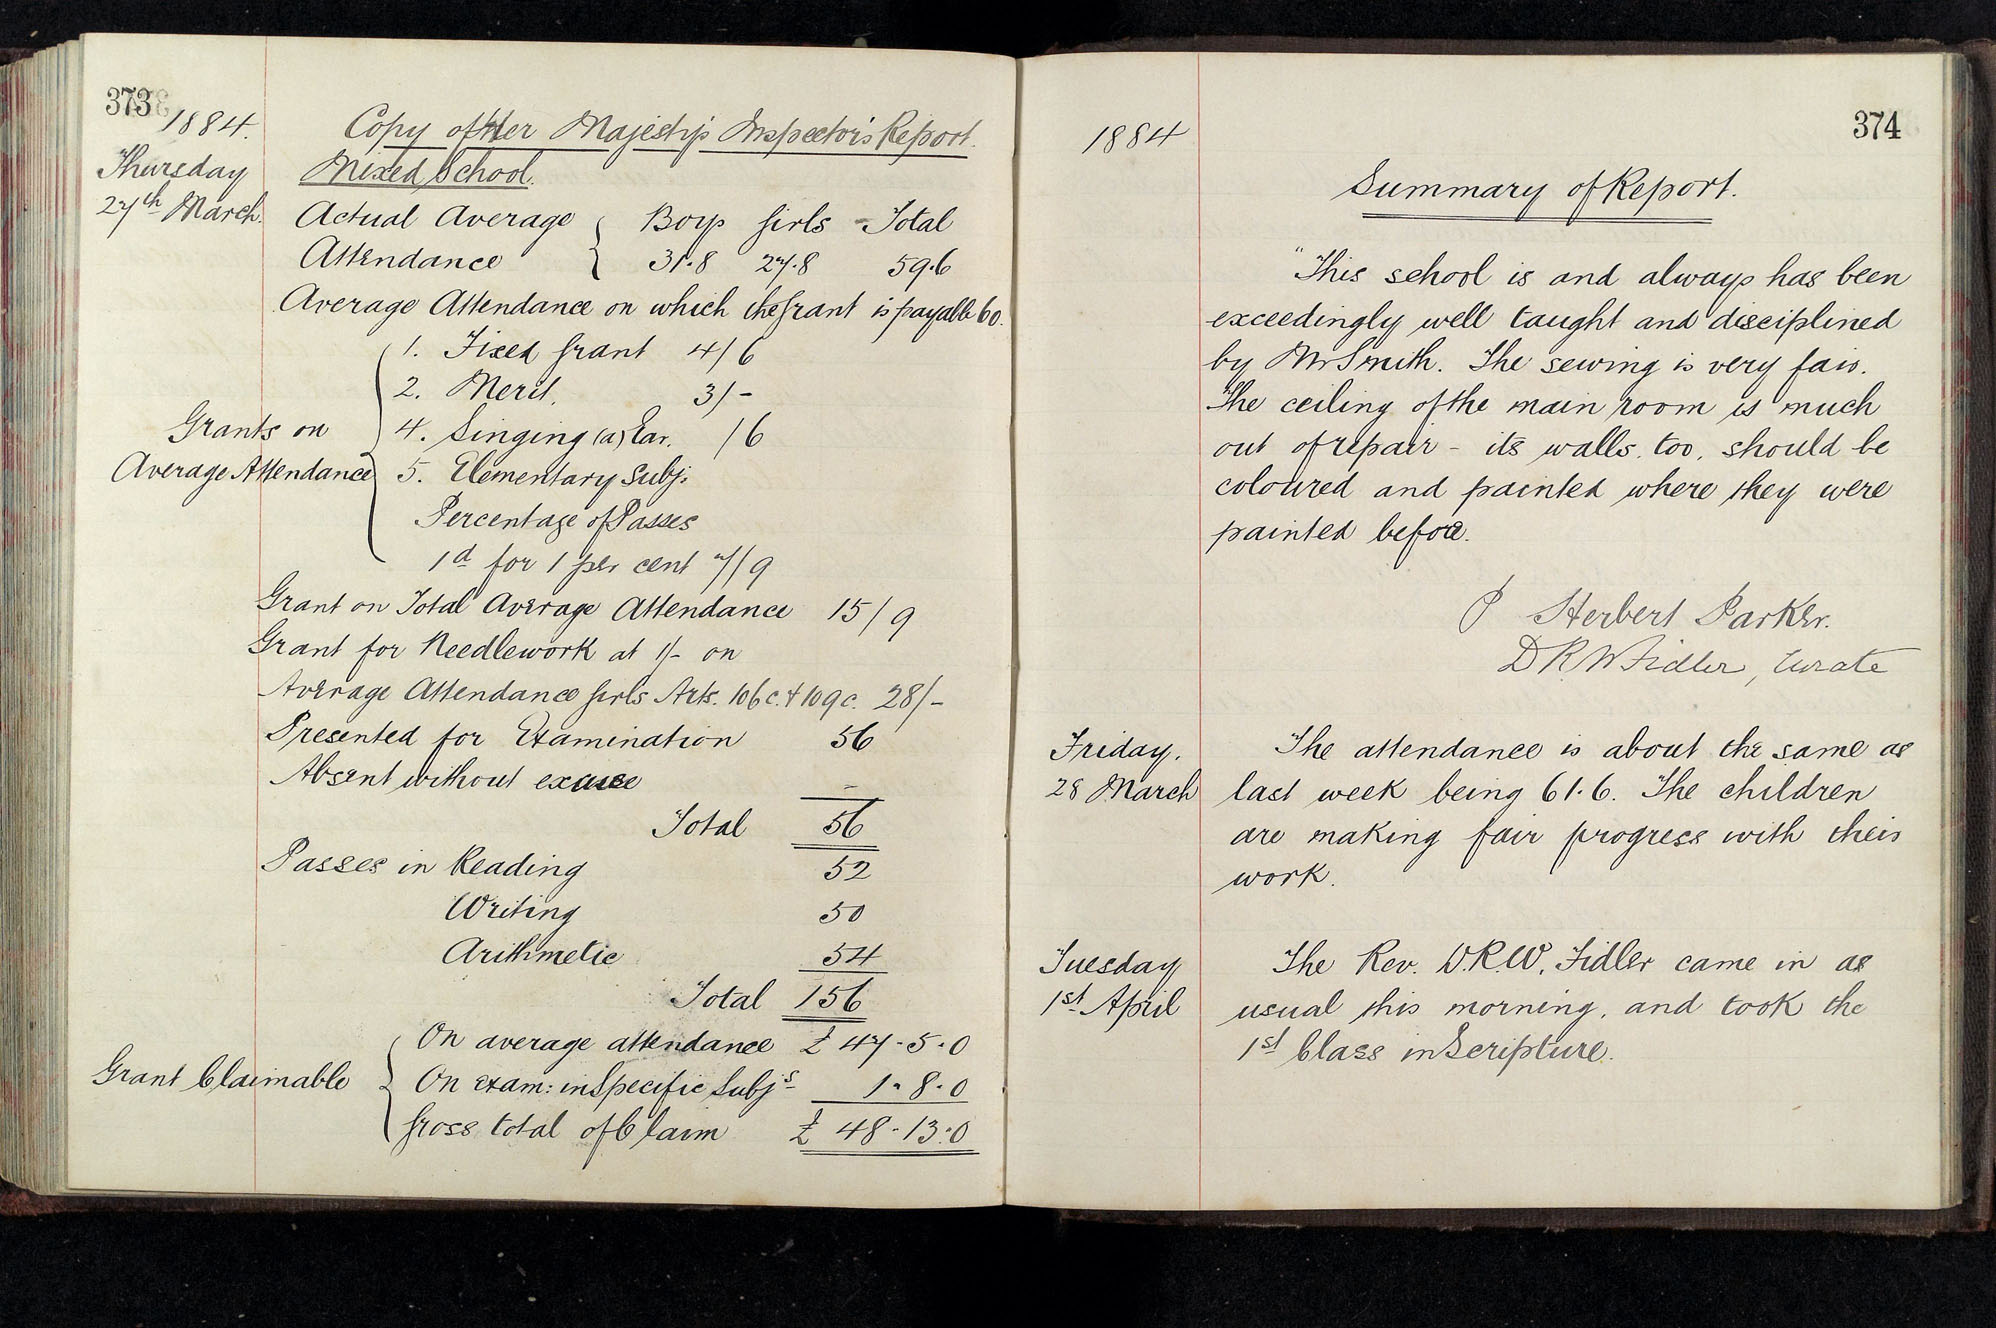 373
1884.
Copy of Her Majesty's Inspector's Report.
Thursday
27th March.
Mixed School.
Actual Average { Boys Girls Total
Attendance 31.8 27.8 59.6
Average Attendance on which the Grant is payable 60.
1. Fixed Grant 4/6
2. Merit. 3/-
Grants on
4. Singing (a) Ear. /6
Average Attendance
5. Elementary Subj:
Percentage of Passes
1d for 1 per cent 7/9
Grant on Total Average Attendance 15/9
Grant for Needlework at 1/- on
Average Attendance Girls Arts. 106 c. & 109 c. 28/-
Presented for Examination 56
Absent without excuse -
Total 56
Passes in Reading 52
Writing 50
Arithmetic 54
Total 156
On average attendance £ 47-5-0
Grant Claimable
On exam: in Specific Subjs 1-8-0
Gross total of Claim £ 48-13-0
374
1884
Summary of Report.
"This school is and always has been
exceedingly well taught and disciplined
by Mr Smith. The sewing is very fair.
The ceiling of the main room is much
out of repair - its walls, too, should be
coloured and painted where they were
painted before.
P Herbert Parker.
D R W Fidler, Curate
Friday.
28 March
The attendance is about the same as
last week being 61.6. The children
are making fair progress with their
work.
Tuesday
1st April
The Rev. D.R.W. Fidler came in as
usual this morning, and took the
1st Class in Scripture.